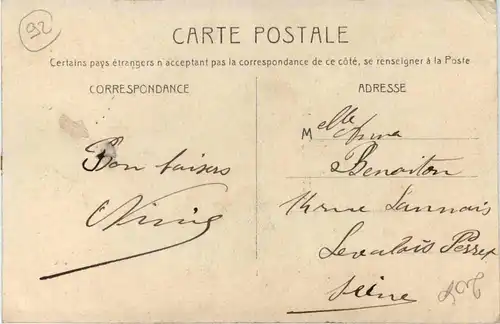 92
CARTE POSTALE
Certains pays étrangers n'acceptant pas la correspondance de ce côté, se renseigner à la Poste
CORRESPONDANCE
ADRESSE
Mlle Anna
Benoiton
Bon baisers
14 rue Lannois
Levalois Perret
Seine